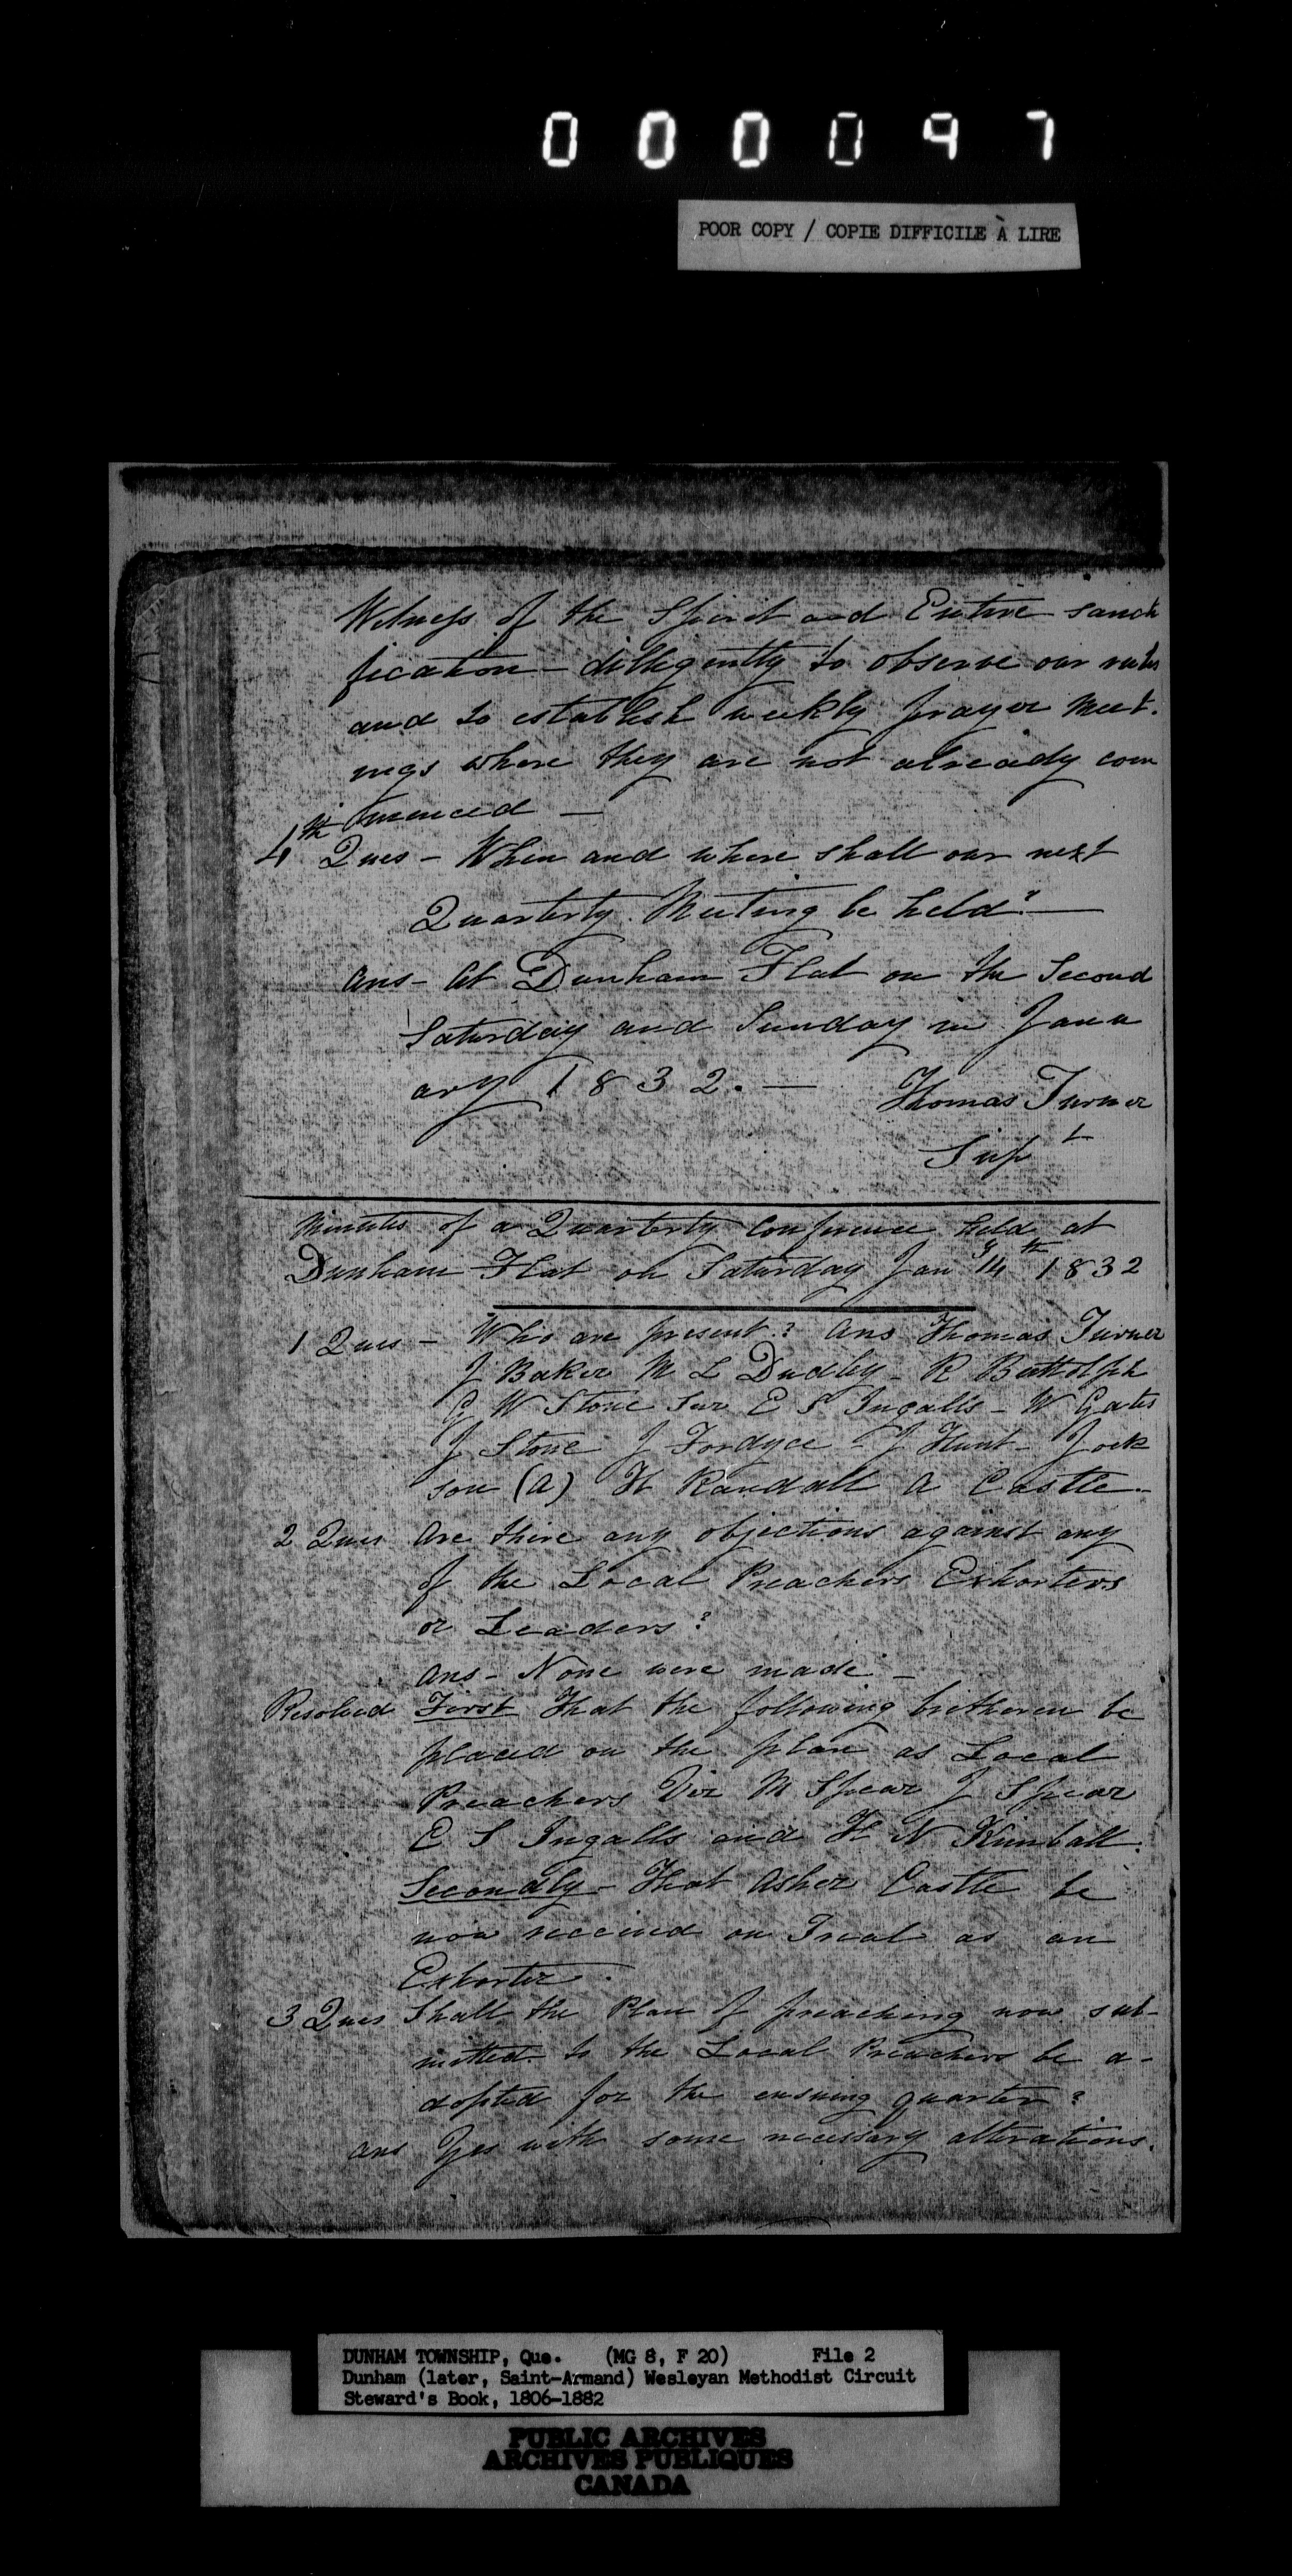 000097
POOR COPY / COPIE DIFFICILE À LIRE
Witness of the Spirit and Entire sancti
fication - dilligently to observe our rules
and to establish weekly prayer meet-
ings where they are not already com
menced —
4th Ques - When and where shall our next
Quarterly Meeting be held? —
Ans - At Dunham Flat on the Second
Saturday and Sunday in Janu
ary 1832. — Thomas Turner
Supt
Minutes of a Quarterly Conference held at
Dunham Flat on Saturday Jany 14th 1832
1 Ques - Who are present? Ans Thomas Turner
J Baker M L Dudley - R Buttolph
G W Stone Sur E S Ingalls - W Gates
J Stone J Fordyce - J Hunt - Jack
son (A) H Randall A Castle -
2 Ques Are there any objections against any
of the Local Preachers Exhorters
or Leaders?
Ans - None were made -
Resolved First That the following bretheren be
placed on the plan as Local
Preachers Viz M Spear J Spear
E S Ingalls and H N Kimball.
Secondly - That Asher Castle be
now received on Trial as an
Exhorter.
3 Ques Shall the Plan of preaching now sub-
mitted to the Local Preachers be a-
dopted for the ensuing quarter?
Ans Yes with some necessary alterations.
DUNHAM TOWNSHIP, Que. (MG 8, F 20) File 2
Dunham (later, Saint-Armand) Wesleyan Methodist Circuit
Steward's Book, 1806-1882
PUBLIC ARCHIVES
ARCHIVES PUBLIQUES
CANADA